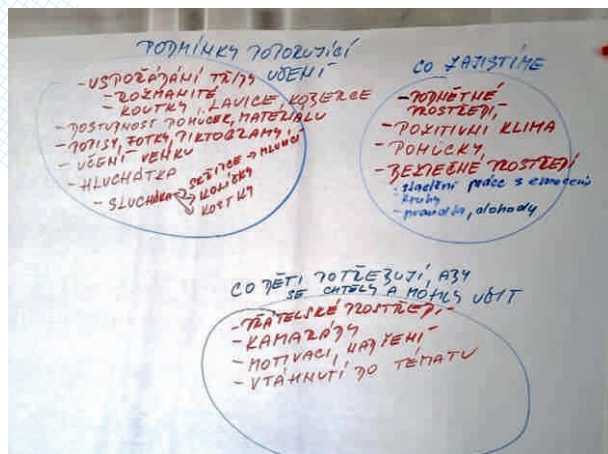 PODMÍNKY PODPORUJÍCÍ
UČENÍ
- USPOŘÁDÁNÍ TŘÍDY
- ROZMANITÉ
- KOUTKY, LAVICE, KOBERCE
- DOSTUPNOST POMŮCEK, MATERIÁLU
- POPISY, FOTKY, PIKTOGRAMY
- UČENÍ VENKU
- HLUCHÁTKA
- SLUCHÁKA → SKŘIPCE → MLUVČÍ
→ KOLÍČKY
→ KOSTKY
CO ZAJISTÍME
- PODNĚTNÉ
PROSTŘEDÍ,
- POZITIVNÍ KLIMA
- POMŮCKY
- BEZPEČNÉ PROSTŘEDÍ
- sladění práce s emocemi
kruhy
- pravidla, dohody
CO DĚTI POTŘEBUJÍ, ABY
SE CHTĚLY A MOHLY UČIT
- PŘÁTELSKÉ PROSTŘEDÍ
- KAMARÁDY
- MOTIVACI, NADŠENÍ
- VTÁHNUTÍ DO TÉMATU